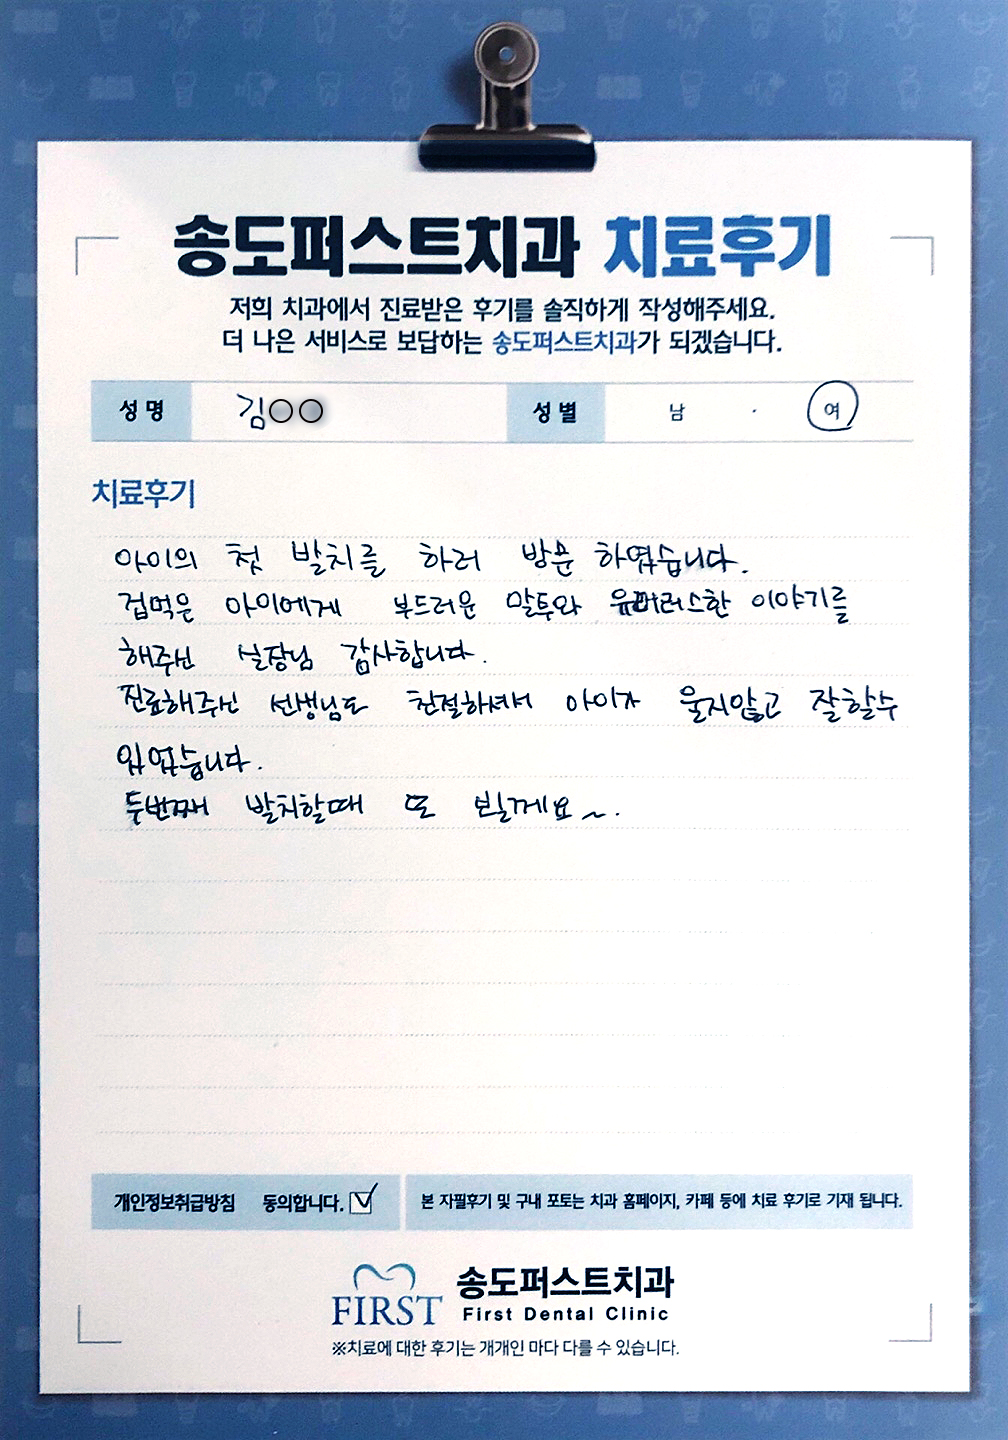 송도퍼스트치과 치료후기
저희 치과에서 진료받은 후기를 솔직하게 작성해주세요.
더 나은 서비스로 보답하는 송도퍼스트치과가 되겠습니다.
성 명 김○○ 성 별 남 · 여
치료후기
아이의 첫 발치를 하러 방문 하였습니다.
겁먹은 아이에게 부드러운 말투와 유머러스한 이야기를
해주신 실장님 감사합니다.
진료해주신 선생님도 친절하셔서 아이가 울지않고 잘할수
있었습니다.
두번째 발치할때 또 뵐께요~.
개인정보취급방침 동의합니다. ☑ 본 자필후기 및 구내 포토는 치과 홈페이지, 카페 등에 치료 후기로 기재 됩니다.
FIRST 송도퍼스트치과
First Dental Clinic
※치료에 대한 후기는 개개인 마다 다를 수 있습니다.